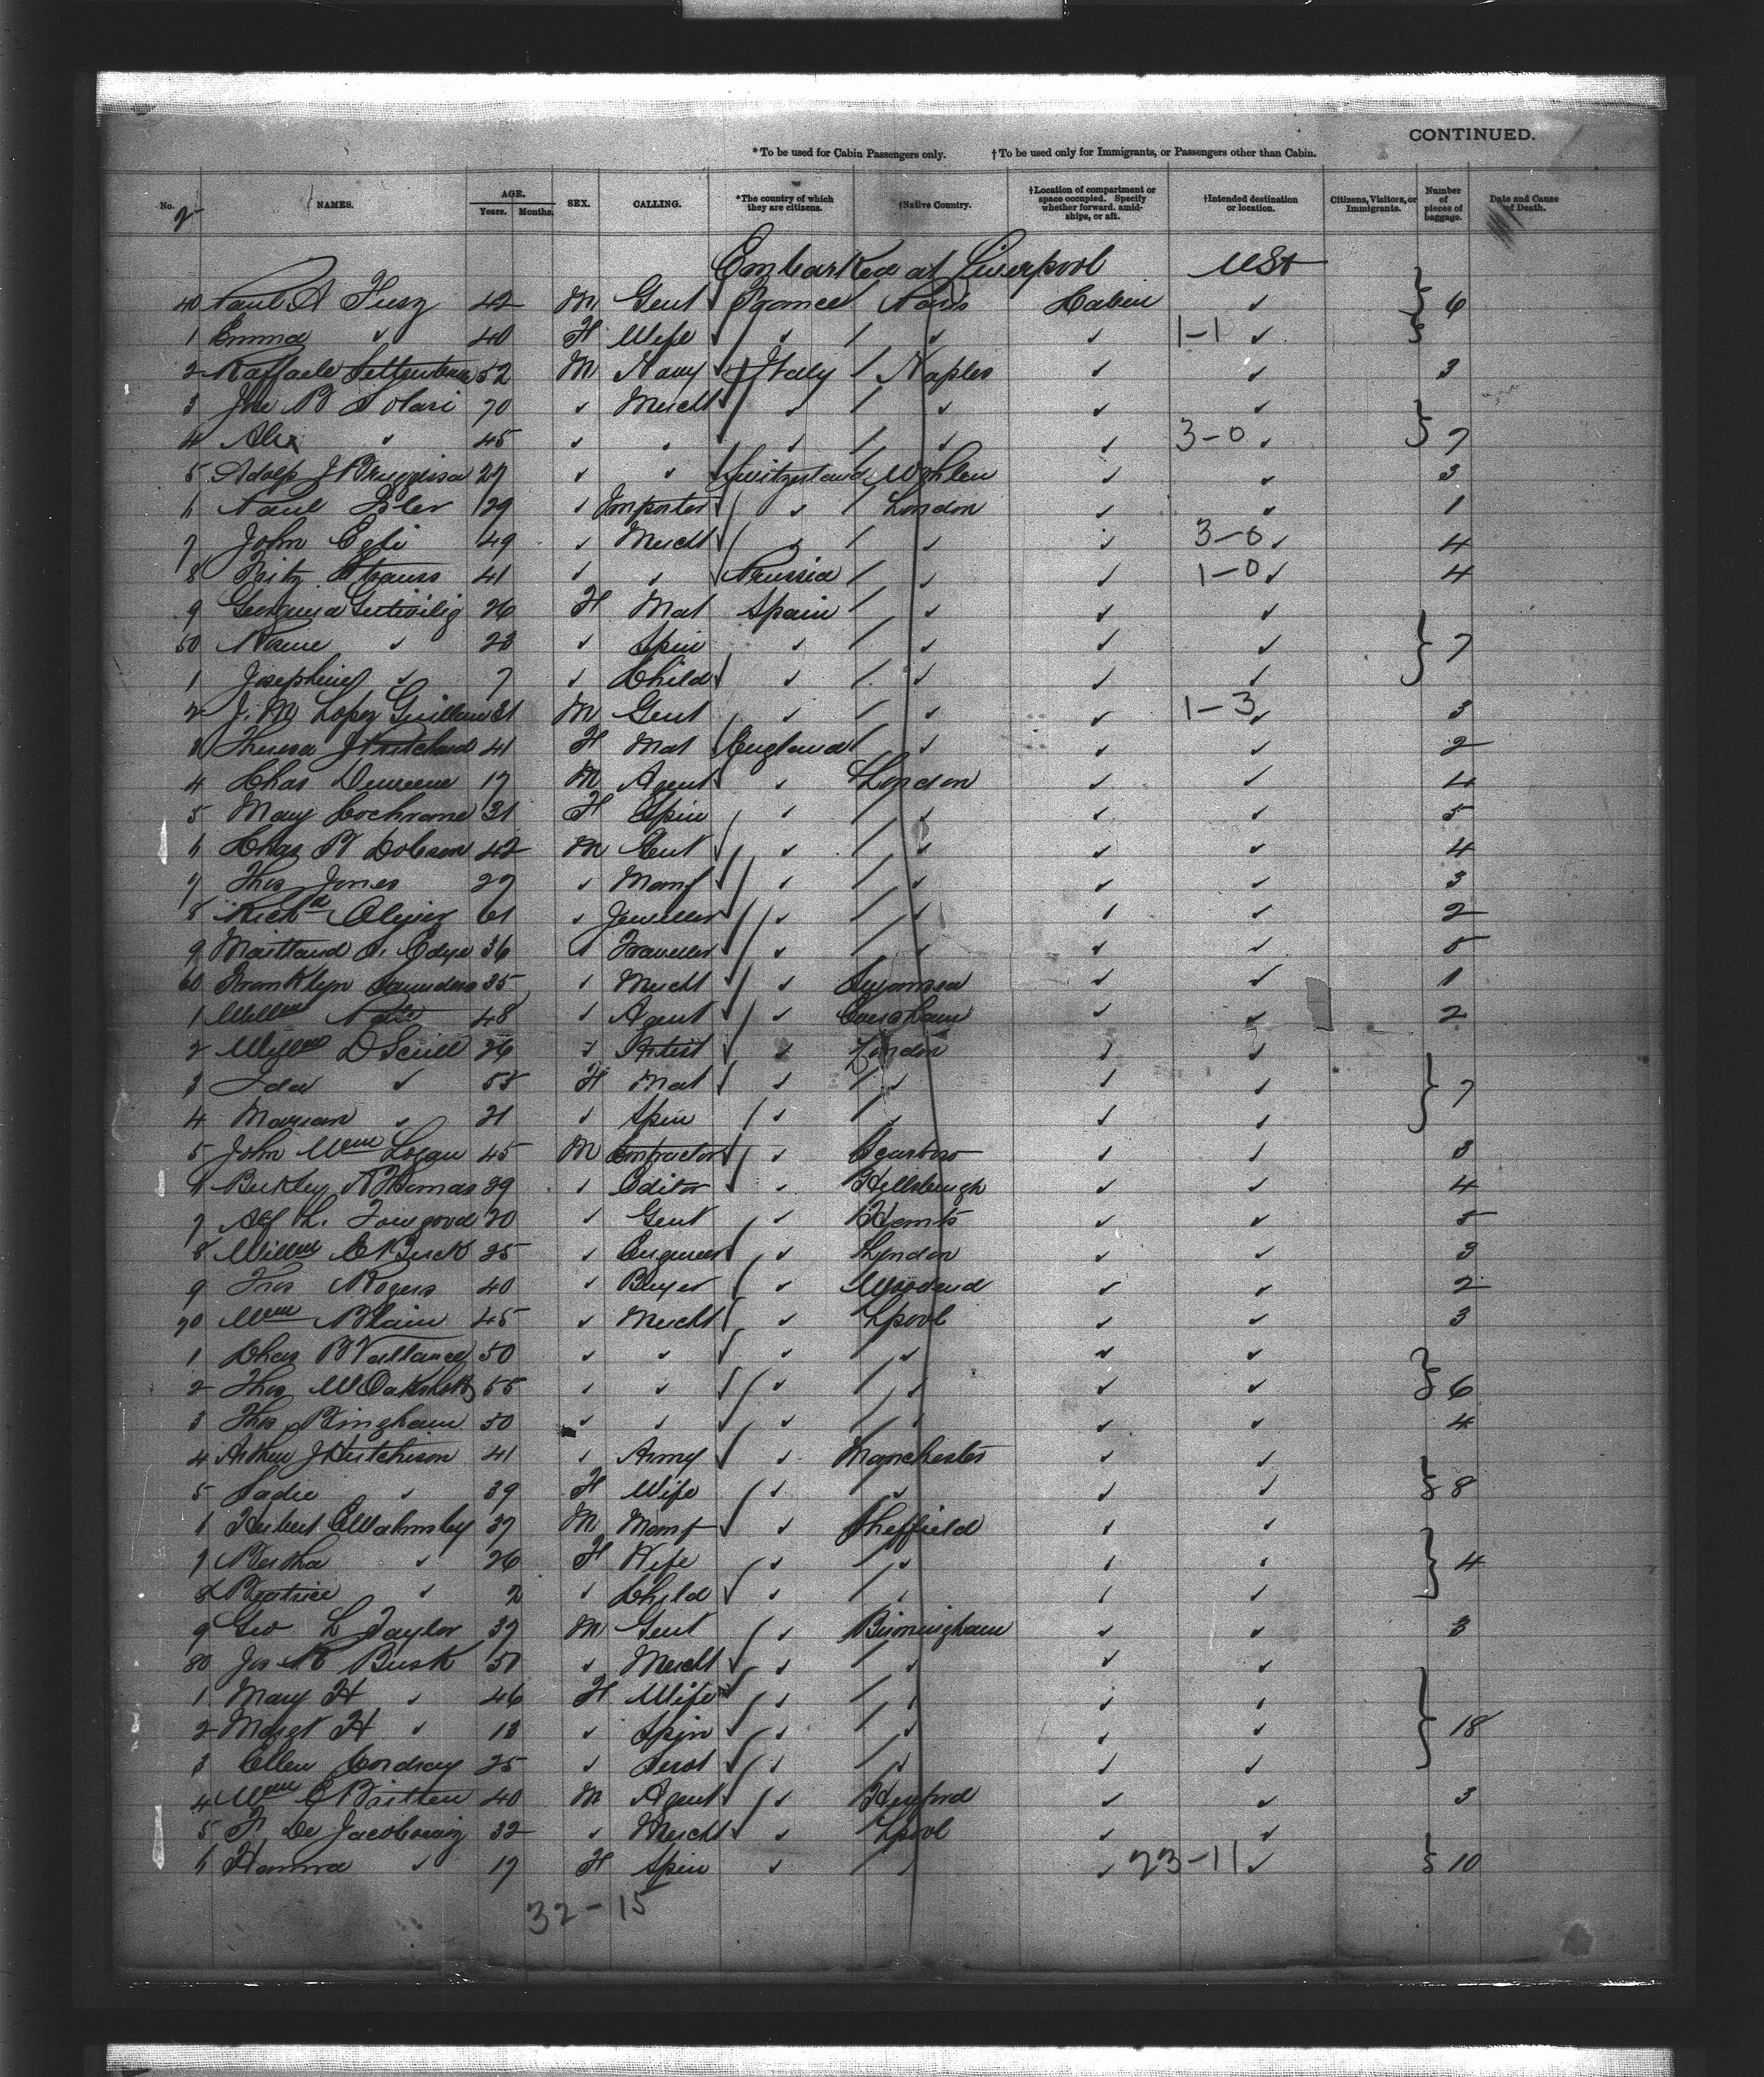 CONTINUED.
* To be used for Cabin Passengers only. † To be used only for Immigrants, or Passengers other than Cabin.
No. NAMES. AGE. Years. Months. SEX. CALLING. *The country of which they are citizens. †Native Country. †Location of compartment or space occupied. Specify whether forward, amidships, or aft. †Intended destination or location. Citizens, Visitors, or Immigrants. Number of pieces of baggage. Date and Cause of Death.
2
Embarked at Liverpool USA
40 Paul A 42 M Gent France Paris Cabin ✓ 6
1 Emma " 40 F Wife ✓ ✓ ✓ 1-1 ✓
2 Raffaele 52 M Navy Italy Naples ✓ ✓ 3
3 Jno B Solari 70 ✓ Mercht ✓ ✓ ✓ ✓
4 Alex ✓ 45 ✓ ✓ ✓ ✓ ✓ 3-0 ✓ 7
5 Adolp J Bruggisser 27 ✓ ✓ Switzerland Wohlen ✓ ✓ 3
6 Paul 29 ✓ Importer ✓ London ✓ ✓ 1
7 John Egli 49 ✓ Mercht ✓ ✓ ✓ 3-0 ✓ 4
8 Fritz Strauss 41 ✓ ✓ Prussia ✓ ✓ 1-0 ✓ 4
9 26 F Mat Spain ✓ ✓ ✓
50 ✓ 23 ✓ Spin ✓ ✓ ✓ ✓ 7
1 Josephine ✓ 7 ✓ Child ✓ ✓ ✓ ✓
2 J. M Lopez Guillen 31 M Gent ✓ ✓ ✓ 1-3 ✓ 3
3 Theresa J Pritchard 41 F Mat England ✓ ✓ ✓ 2
4 Chas 17 M Agent ✓ London ✓ ✓ 4
5 Mary Cochrane 31 F Spin ✓ ✓ ✓ ✓ 5
6 Chas F Dobson 42 M Gent ✓ ✓ ✓ ✓ 4
7 Thos Jones 27 ✓ Manf ✓ ✓ ✓ ✓ 3
8 Richd 61 ✓ Jeweller ✓ ✓ ✓ ✓ 2
9 Maitland A. Edye 36 ✓ Traveller ✓ ✓ ✓ ✓ 5
60 Franklyn Saunders 35 ✓ Mercht ✓ Swansea ✓ ✓ 1
1 Willm 48 ✓ Agent ✓ Evesham ✓ ✓ 2
2 Willm D Scull 26 ✓ Artist ✓ London ✓ ✓
3 Ida ✓ 55 F Mat ✓ ✓ ✓ ✓ 7
4 Marian ✓ 21 ✓ Spin ✓ ✓ ✓ ✓
5 John Wm Logan 45 M Contractor ✓ ✓ ✓ 3
6 Thomas 29 ✓ Editor ✓ ✓ ✓ 4
7 Alf L. Towgood 20 ✓ Gent ✓ Hants ✓ ✓ 5
8 Willm 25 ✓ Engineer ✓ London ✓ ✓ 3
9 Rogers 40 ✓ Buyer ✓ ✓ ✓ 2
70 Wm Blain 45 ✓ Mercht ✓ Lpool ✓ ✓ 3
1 Chas B Vallance 50 ✓ ✓ ✓ ✓ ✓ ✓
2 Thos W Oakshott 55 ✓ ✓ ✓ ✓ ✓ ✓ 6
3 Thos Bingham 50 ✓ ✓ ✓ ✓ ✓ ✓ 4
4 Arthur J Hutchison 41 ✓ Army ✓ Manchester ✓ ✓
5 Sadie ✓ 39 F Wife ✓ ✓ ✓ ✓ 8
6 Herbert E Walmsley 37 M Manf ✓ Sheffield ✓ ✓
7 Bertha ✓ 26 F Wife ✓ ✓ ✓ ✓ 4
8 Beatrice ✓ 2 ✓ Child ✓ ✓ ✓ ✓
9 Geo L Taylor 37 M Gent ✓ Birmingham ✓ ✓ 3
80 Jos R Busk 51 ✓ Mercht ✓ ✓ ✓ ✓
1 Mary H ✓ 46 F Wife ✓ ✓ ✓ ✓
2 Margt H ✓ 13 ✓ Spin ✓ ✓ ✓ ✓ 18
3 Ellen Cordray 25 ✓ Servt ✓ ✓ ✓ ✓
4 Wm E Britten 40 M Agent ✓ Hereford ✓ ✓ 3
5 F De 32 ✓ Mercht ✓ Lpool ✓ ✓
6 Hanna ✓ 17 F Spin ✓ ✓ ✓ 23-11 ✓ 10
32-15